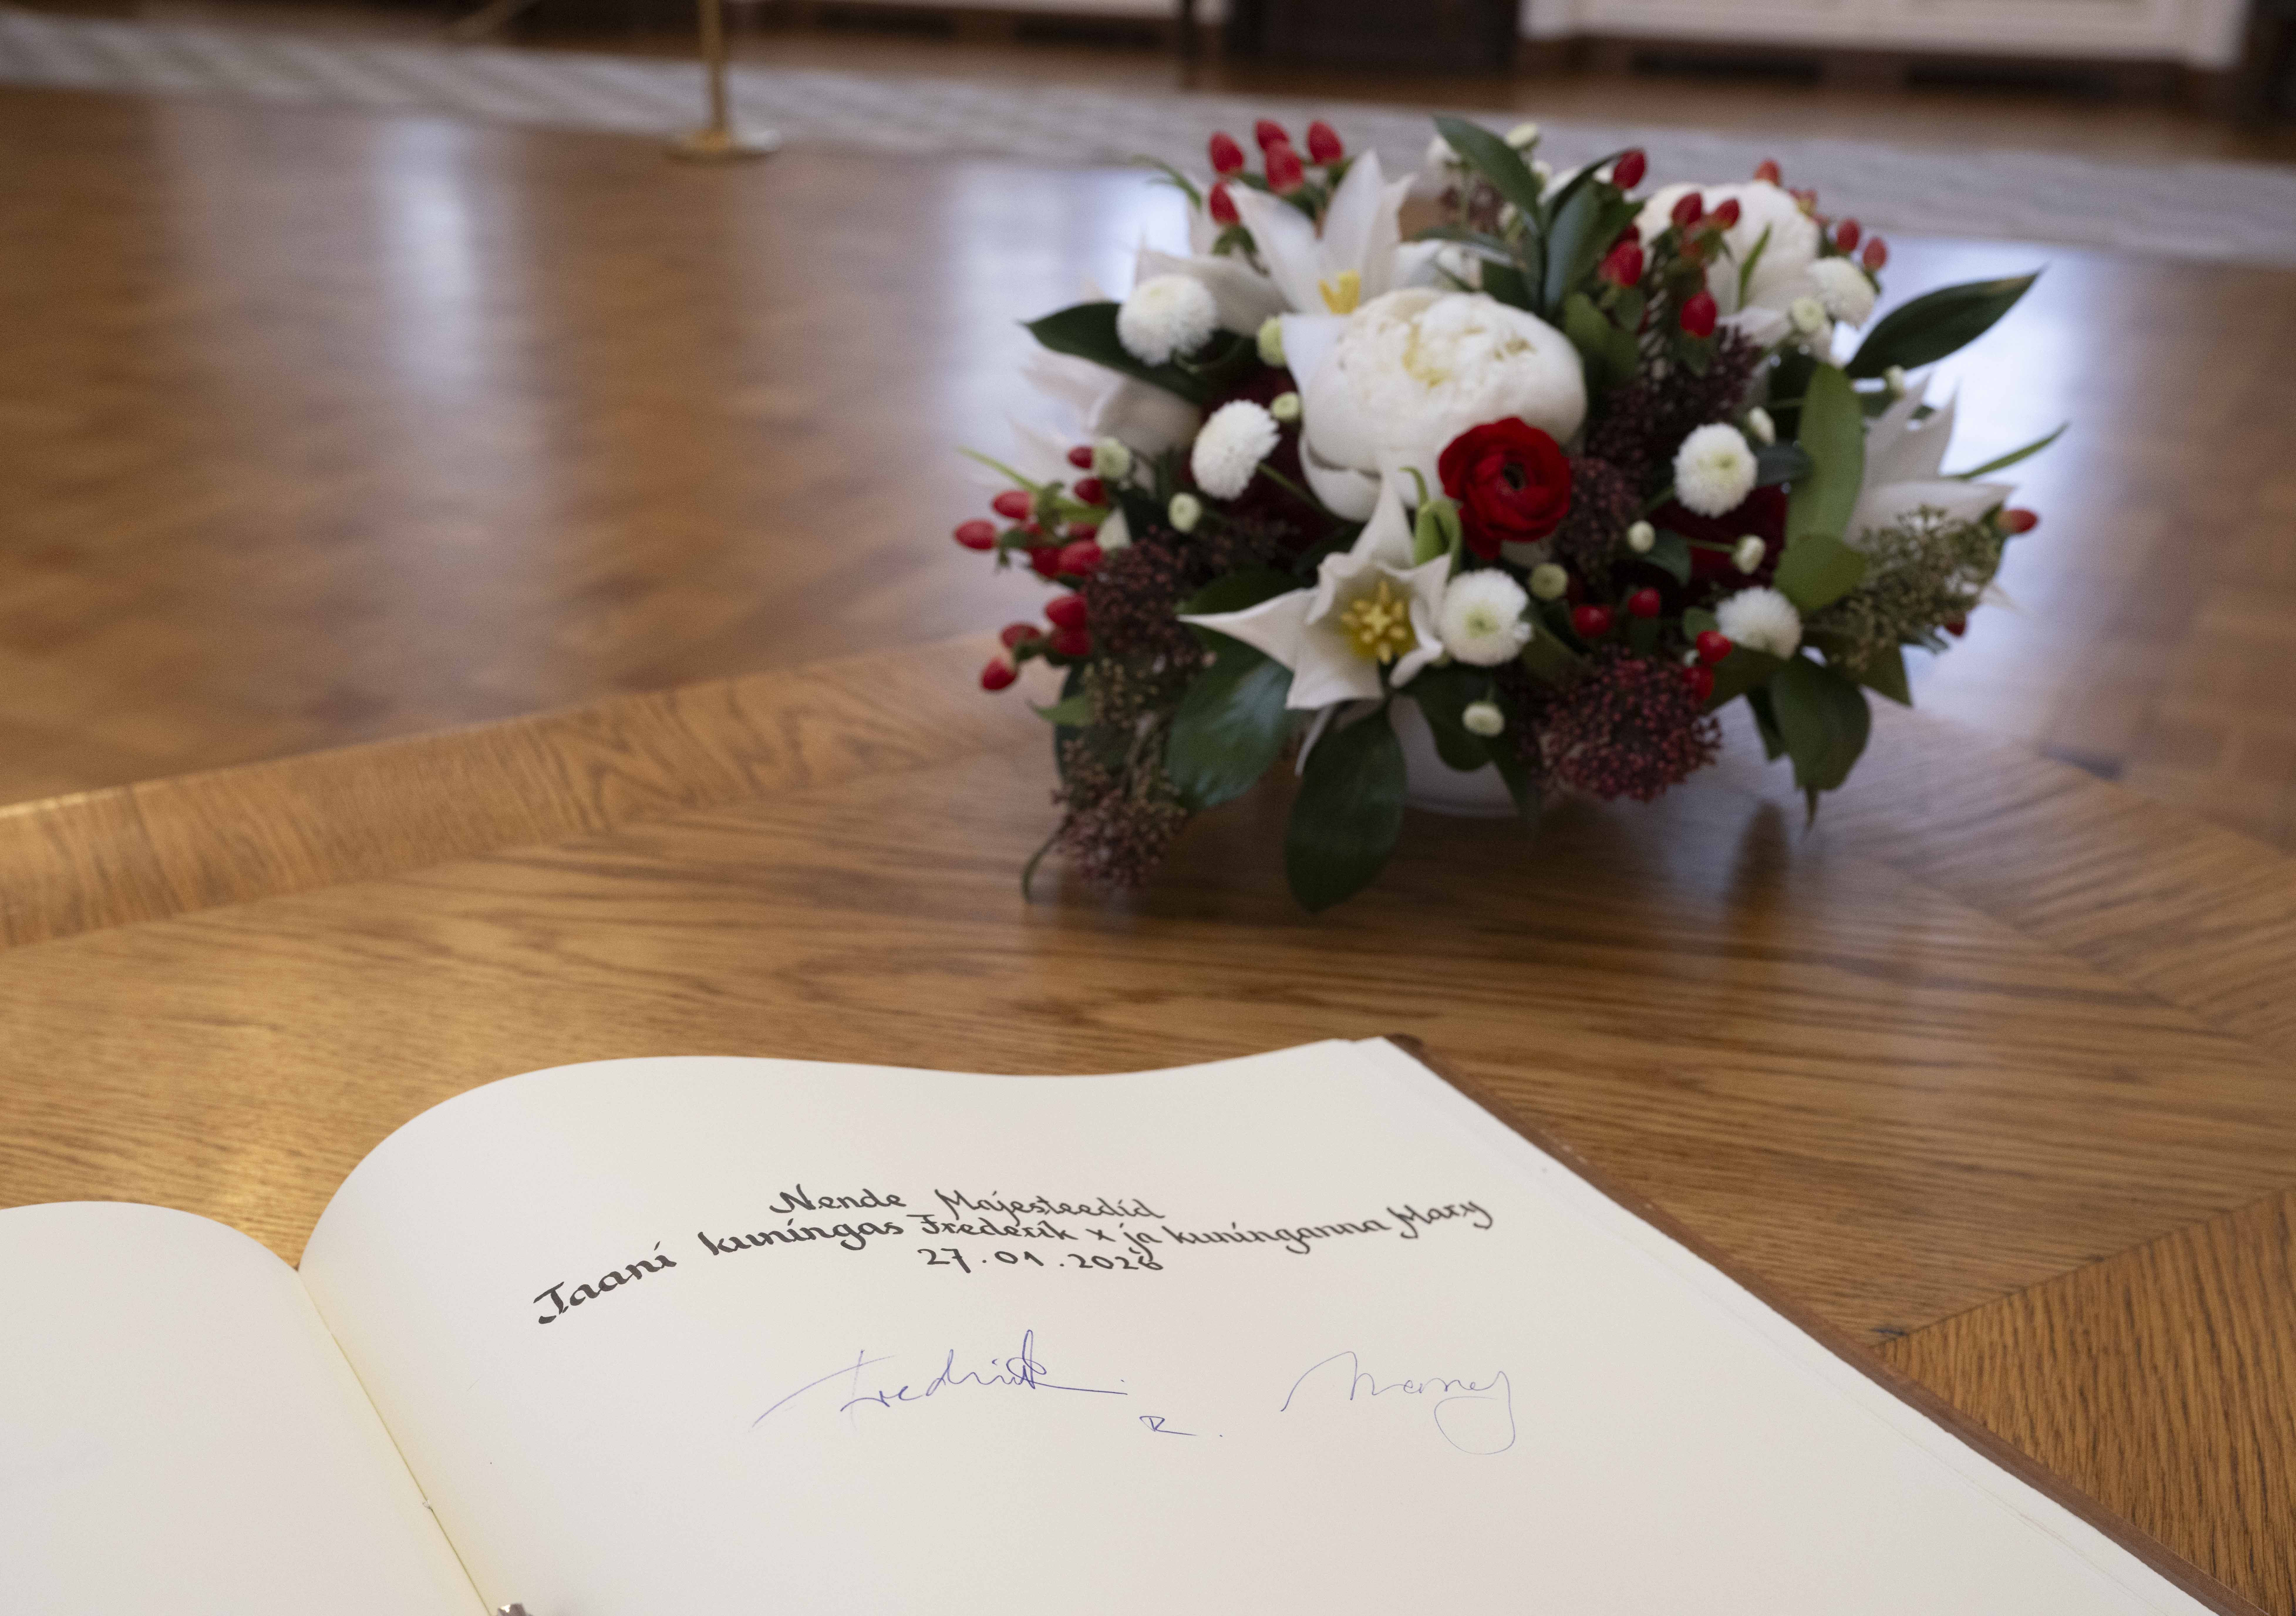 Nende Majesteedid
Taani kuningas Frederik X ja kuninganna Mary
27.01.2026
Frederik
R.
Mary